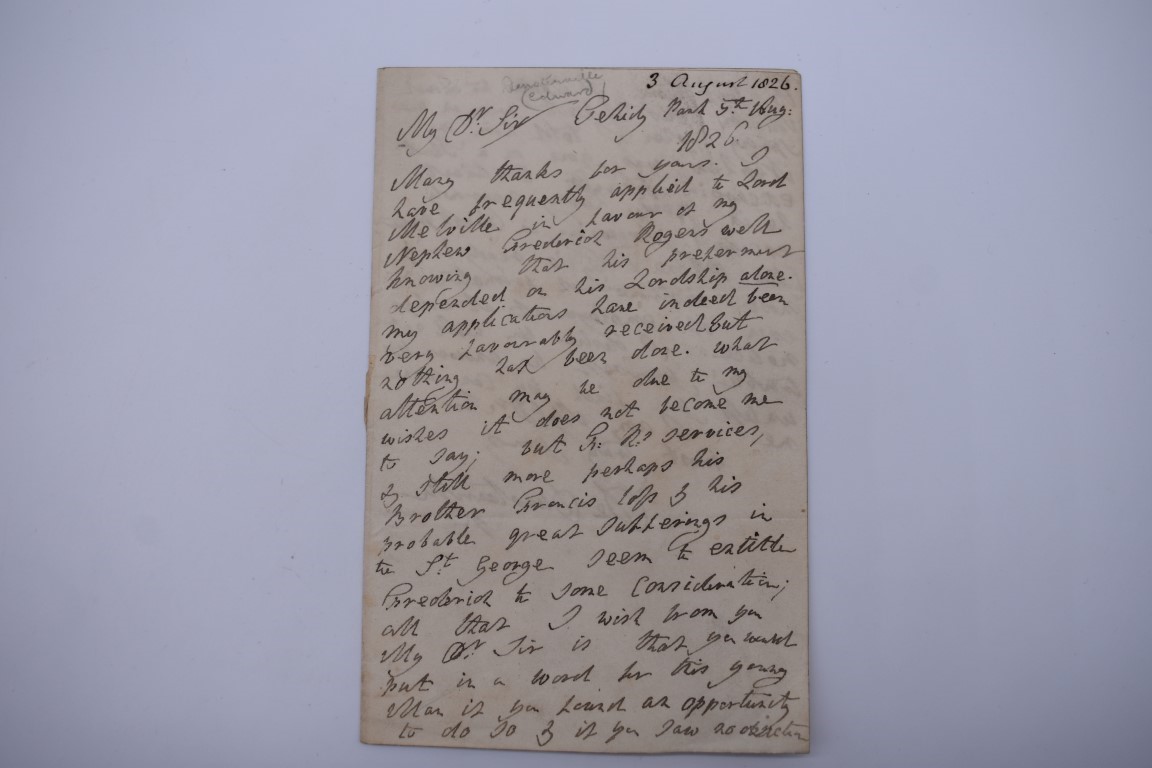 3 August 1826.
(Edward)
My Dr. Sir Tehidy Park 5th Aug:
1826
Many thanks for yours. I
have frequently applied to Lord
Melville in favour of my
Nephew Frederick Rogers well
knowing that his preferment
depended on his Lordship alone.
my applications have indeed been
very favourably received but
nothing has been done. what
attention may be due to my
wishes it does not become me
to say; but F: Rs services,
& still more perhaps his
Brother Francis loss & his
probable great sufferings in
the St. George seem to entitle
Frederick to some consideration;
all that I wish from you
My Dr Sir is that you would
put in a word for this young
Man if you found an opportunity
to do so & if you saw no objection